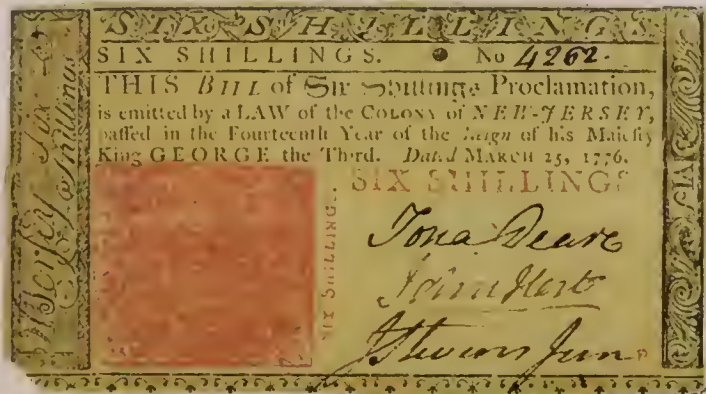 SIX SHILLINGS
SIX SHILLINGS. No 4262.
THIS BILL of Six Shillings Proclamation,
is emitted by a LAW of the COLONY of NEW-JERSEY,
paſſed in the Fourteenth Year of the Reign of his Majeſty
King GEORGE the Third. Dated MARCH 25, 1776.
SIX SHILLINGS
SIX SHILLING.
Jona Deare
John Hart
J Stevens Jun
N Jersey Six
Shillings